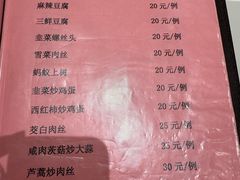 麻辣豆腐 20 元/例
三鲜豆腐 20 元/例
韭菜螺丝头 20 元/例
雪菜肉丝 20 元/例
蚂蚁上树 20 元/例
韭菜炒鸡蛋 20 元/例
西红柿炒鸡蛋 20 元/例
茭白肉丝 25 元/例
咸肉茨菇炒大蒜 23 元/例
芦蒿炒肉丝 30 元/例